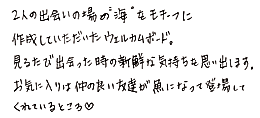 2人の出会いの場の"海"をモチーフに
作成していただいたウェルカムボード。
見るたび出会った時の新鮮な気持ちを思い出します。
お気に入りは仲の良い友達が魚になって登場して
くれているところ♡